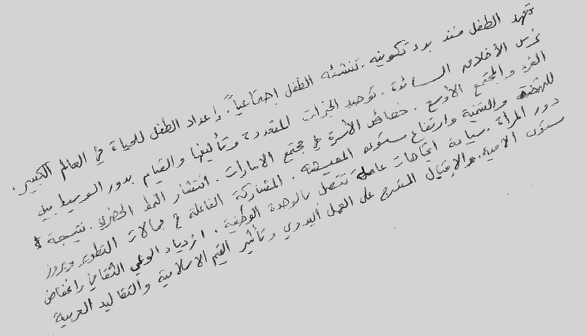 تعهد الطفل منذ بدء تكوينه. تنشئه الطفل إجتماعياً. إعداد الطفل للحياة في العالم الكبير.
غرس الأخلاق السائدة. توحيد الخبرات المتعددة وتأليفها والقيام بدور الوسيط بين
الفرد والمجتمع الأوسع. خصائص الأسرة في مجتمع الامارات. انتشار النمط الحضري. نتيجة
للنهضة والتنمية وارتفاع مستوى المعيشة. المشاركة الفاعلة في مجالات التطوير وبروز
دور المرأة. سيادة اتجاهات عامة تتصل بالوحدة الوطنية. ازدياد الوعي الثقافي وانخفاض
مستوى الأمية. والإقبال على العمل اليدوي وتأثير القيم الاسلامية والتقاليد العربية